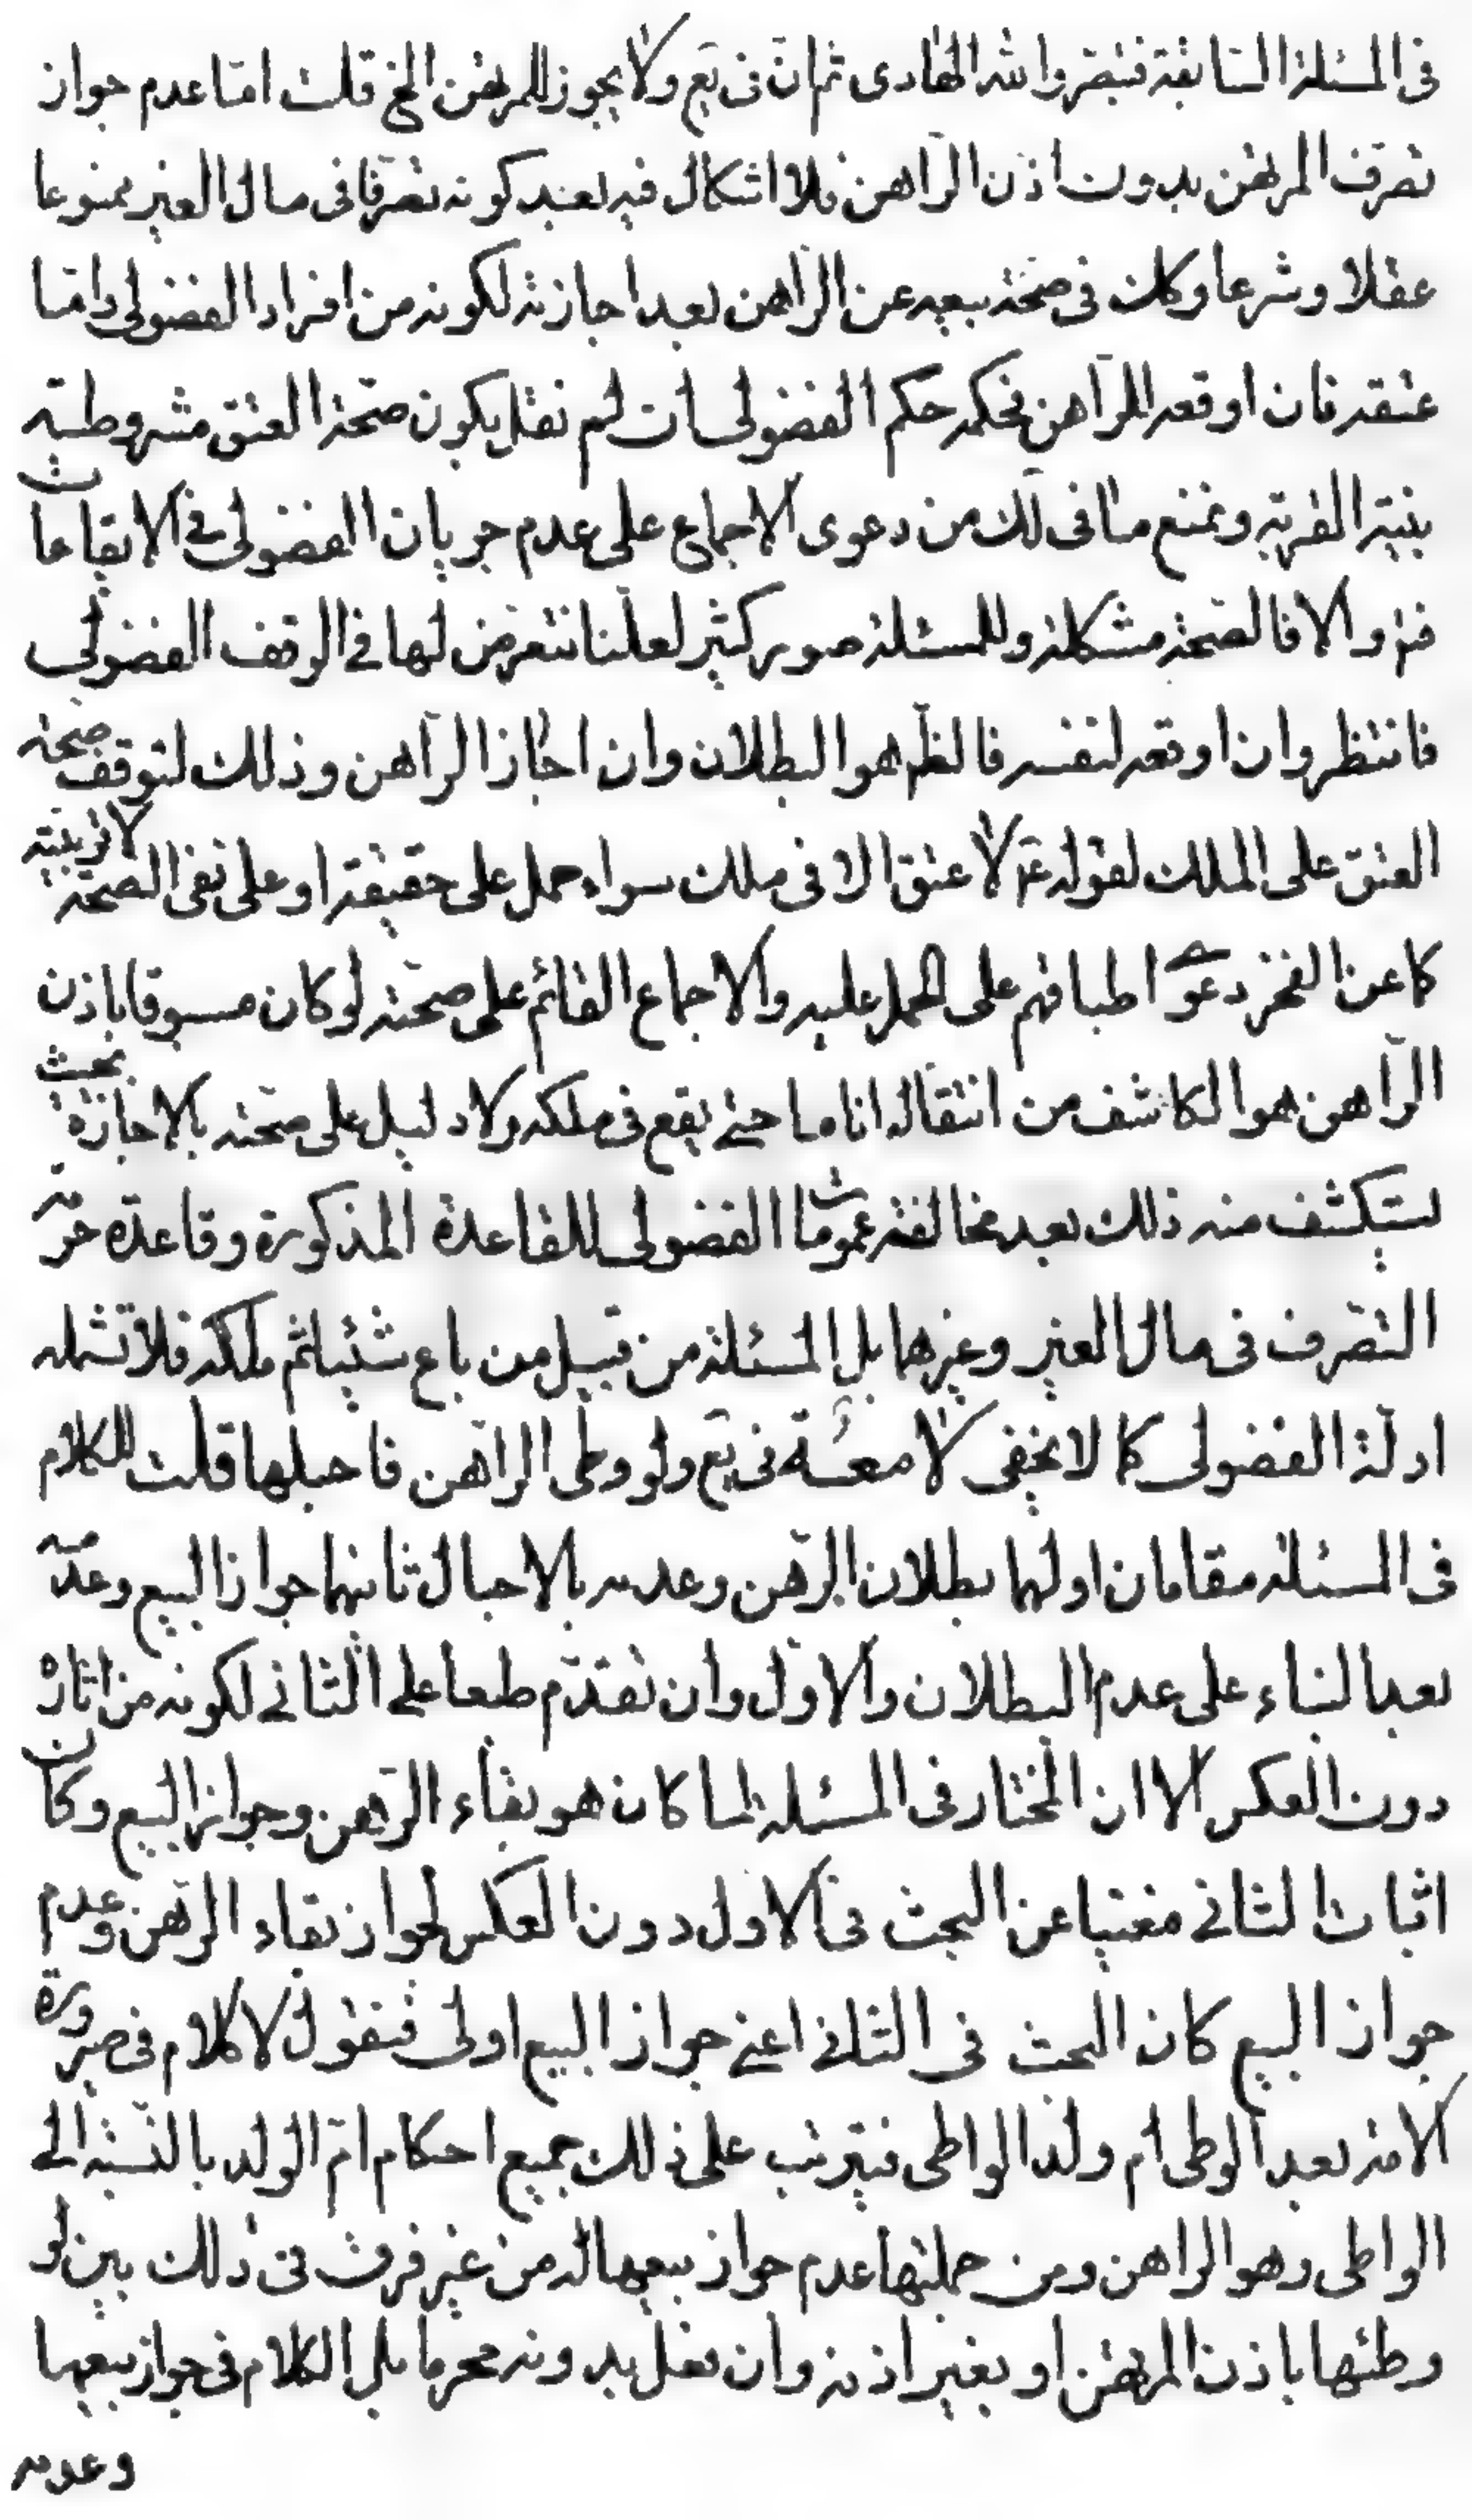 فى المسئلة السابقة فتبصر والله الهادى ثم ان فى يع ولا يجوز للمرتهن الخ قلت امّا عدم جواز
تصرف المرتهن بدون اذن الرّاهن فلا اشكال فيه بعد كونه تصرّفا فى مال الغير ممنوعا
عقلا وشرعا وكك فى صحّة بيعه عن الرّاهن بعد اجازته لكونه من افراد الفضولى وامّا
عتقه فان اوقعه للرّاهن فحكمه حكم الفضولى ان لم نقل بكون صحّة العتق مشروطة
بنيّة القربة ونمنع ما فى لك من دعوى الاجماع على عدم جريان الفضولى فى الايقاعات
فتم والا فالصحّة مشكلة وللمسئلة صور كثير لعلّنا نتعرض لها فى الوقف الفضولى
فانتظر وان اوقعه لنفسه فالظّم هو البطلان وان اجاز الرّاهن وذلك لتوقف صحّة
العتق على الملك لقوله ع لا عتق الا فى ملك سواء حمل على حقيقته او على نفى الصحّة لانّه بنيّة
كما عن الفخر دعوى اطباقهم على الحمل عليه والاجماع القائم على صحّته لو كان مسبوقا باذن
الرّاهن هو الكاشف من انتقاله اناما حتى يقع فى ملكه ولا دليل على صحّته بالاجازة بحيث
يستكشف منه ذلك بعد مخالفته عمومات الفضولى للقاعدة المذكورة وقاعدة حرمة
التصرف فى مال الغير وغيرها بل المسئلة من قبيل من باع شيئا ثم ملكه فلا تشمله
ادلّة الفضولى كما لا يخفى فى يع ولو وطى الرّاهن فاحبلها قلت للكلام
فى المسئلة مقامان اولهما بطلان الرّهن وعدمه بالاحبال ثانيهما جواز البيع وعدمه
بعد البناء على عدم البطلان والاوّل وان تقدّم طبعا على الثانى لكونه من اثاره
دون العكس الا ان المختار فى المسئلة لما كان هو بقاء الرّهن وجواز البيع وكان
اثبات الثانى مغنيا عن البحث فى الاول دون العكس لجواز بقاء الرّهن وعدم
جواز البيع كان البحث فى الثانى اعنى جواز البيع اولى فنقول لا كلام فى صيرورة
الامة بعد الوطى ام ولد الواطى فيترتب على ذلك جميع احكام امّ الولد بالنّسبة الى
الواطى وهو الراهن ومن جملتها عدم جواز بيعها له من غير فرق فى ذلك بين لو
وطئها باذن المرتهن او بغير اذنه وان فعل بدونه محرما بل الكلام فى جواز بيعها
وعدمه